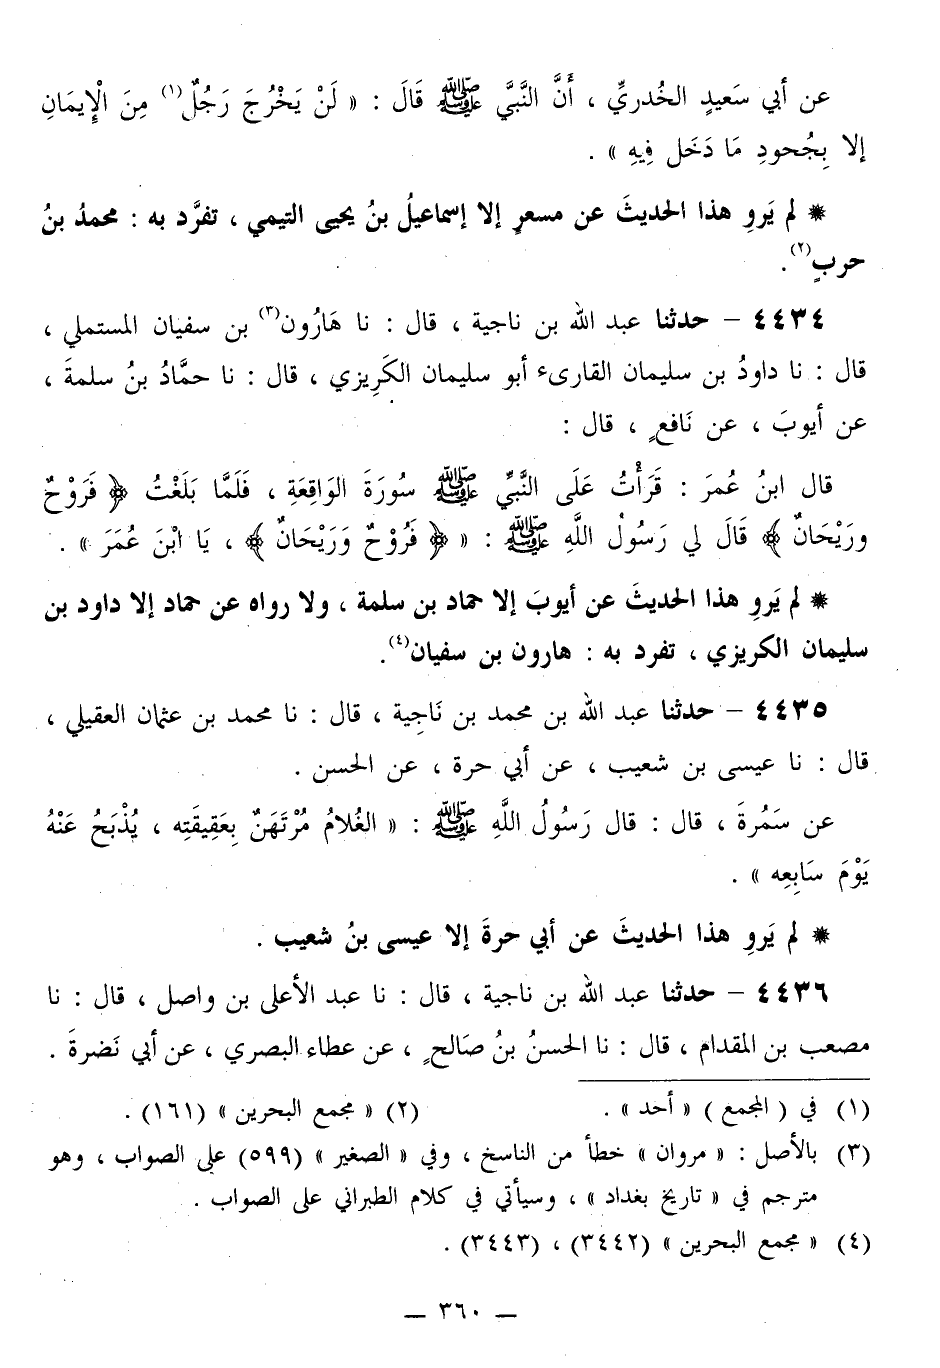 عن أبي سَعيدٍ الخُدريِّ ، أَنَّ النَّبيَّ ﷺ قَالَ : « لَنْ يَخْرُجَ رَجُلٌ(١) مِنَ الْإِيمَانِ
إلا بِجُحودِ مَا دَخَل فِيهِ » .
* لم يَروِ هذا الحديثَ عن مسعرٍ إلا إسماعيلُ بنُ يحيى التيمي ، تفرَّد به : محمدُ بنُ
حربٍ(٢).
٤٤٣٤ – حدثنا عبد الله بن ناجية ، قال : نا هَارُون(٣) بن سفيان المستملي ،
قال : نا داودُ بن سليمان القارىء أبو سليمان الكَرِيزي ، قال : نا حمَّادُ بنُ سلمةَ ،
عن أيوبَ ، عن نَافعٍ ، قال :
قال ابنُ عُمرَ : قَرَأْتُ عَلَى النَّبيِّ ﷺ سُورَةَ الوَاقِعَةِ ، فَلَمَّا بَلَغْتُ ﴿ فَرَوْحٌ
ورَيْحَانٌ ﴾ قَالَ لي رَسُولُ اللَّهِ ﷺ : « ﴿ فَرُوْحٌ وَرَيْحَانٌ ﴾ ، يَا ابْنَ عُمَرَ » .
* لم يَروِ هذا الحديثَ عن أيوبَ إلا حماد بن سلمة ، ولا رواه عن حماد إلا داود بن
سليمان الكريزي ، تفرد به : هارون بن سفيان(٤).
٤٤٣٥ – حدثنا عبد الله بن محمد بن نَاجِية ، قال : نا محمد بن عثمان العقيلي ،
قال : نا عيسى بن شعيب ، عن أبي حرة ، عن الحسن .
عن سَمُرةَ ، قال : قال رَسُولُ اللَّهِ ﷺ : « الغُلامُ مُرْتَهَنٌ بِعَقِيقَتِه ، يُذْبَحُ عَنْهُ
يَوْمَ سَابِعِه » .
* لم يَروِ هذا الحديثَ عن أبي حرةَ إلا عيسى بنُ شعيب .
٤٤٣٦ – حدثنا عبد الله بن ناجية ، قال : نا عبد الأعلى بن واصل ، قال : نا
مصعب بن المقدام ، قال : نا الحسنُ بنُ صَالحٍ ، عن عطاء البصري ، عن أبي نَضرةَ .
(١) في ( المجمع ) « أحد » . (٢) « مجمع البحرين » (١٦١) .
(٣) بالأصل : « مروان » خطأ من الناسخ ، وفي « الصغير » (٥٩٩) على الصواب ، وهو
مترجم في « تاريخ بغداد » ، وسيأتي في كلام الطبراني على الصواب .
(٤) « مجمع البحرين » (٣٤٤٢) ، (٣٤٤٣) .
— ٣٦٠ —